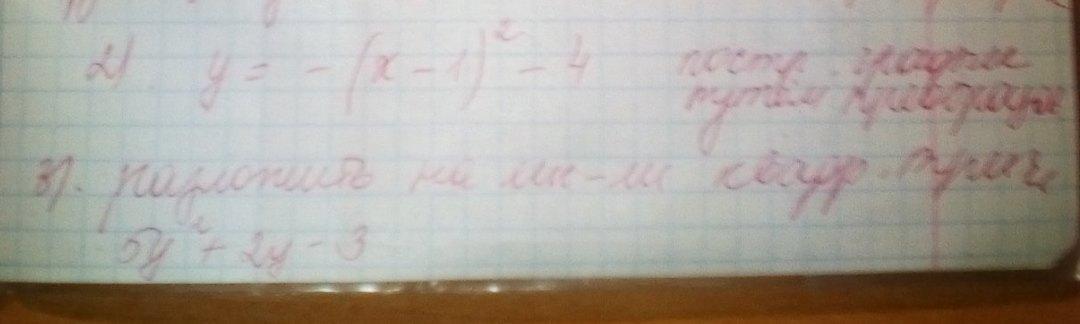 2) y = -(x-1)² - 4 постр. график
путём преобразов
3). разложить на мн-ли квадр. трёхчл
5y² + 2y - 3